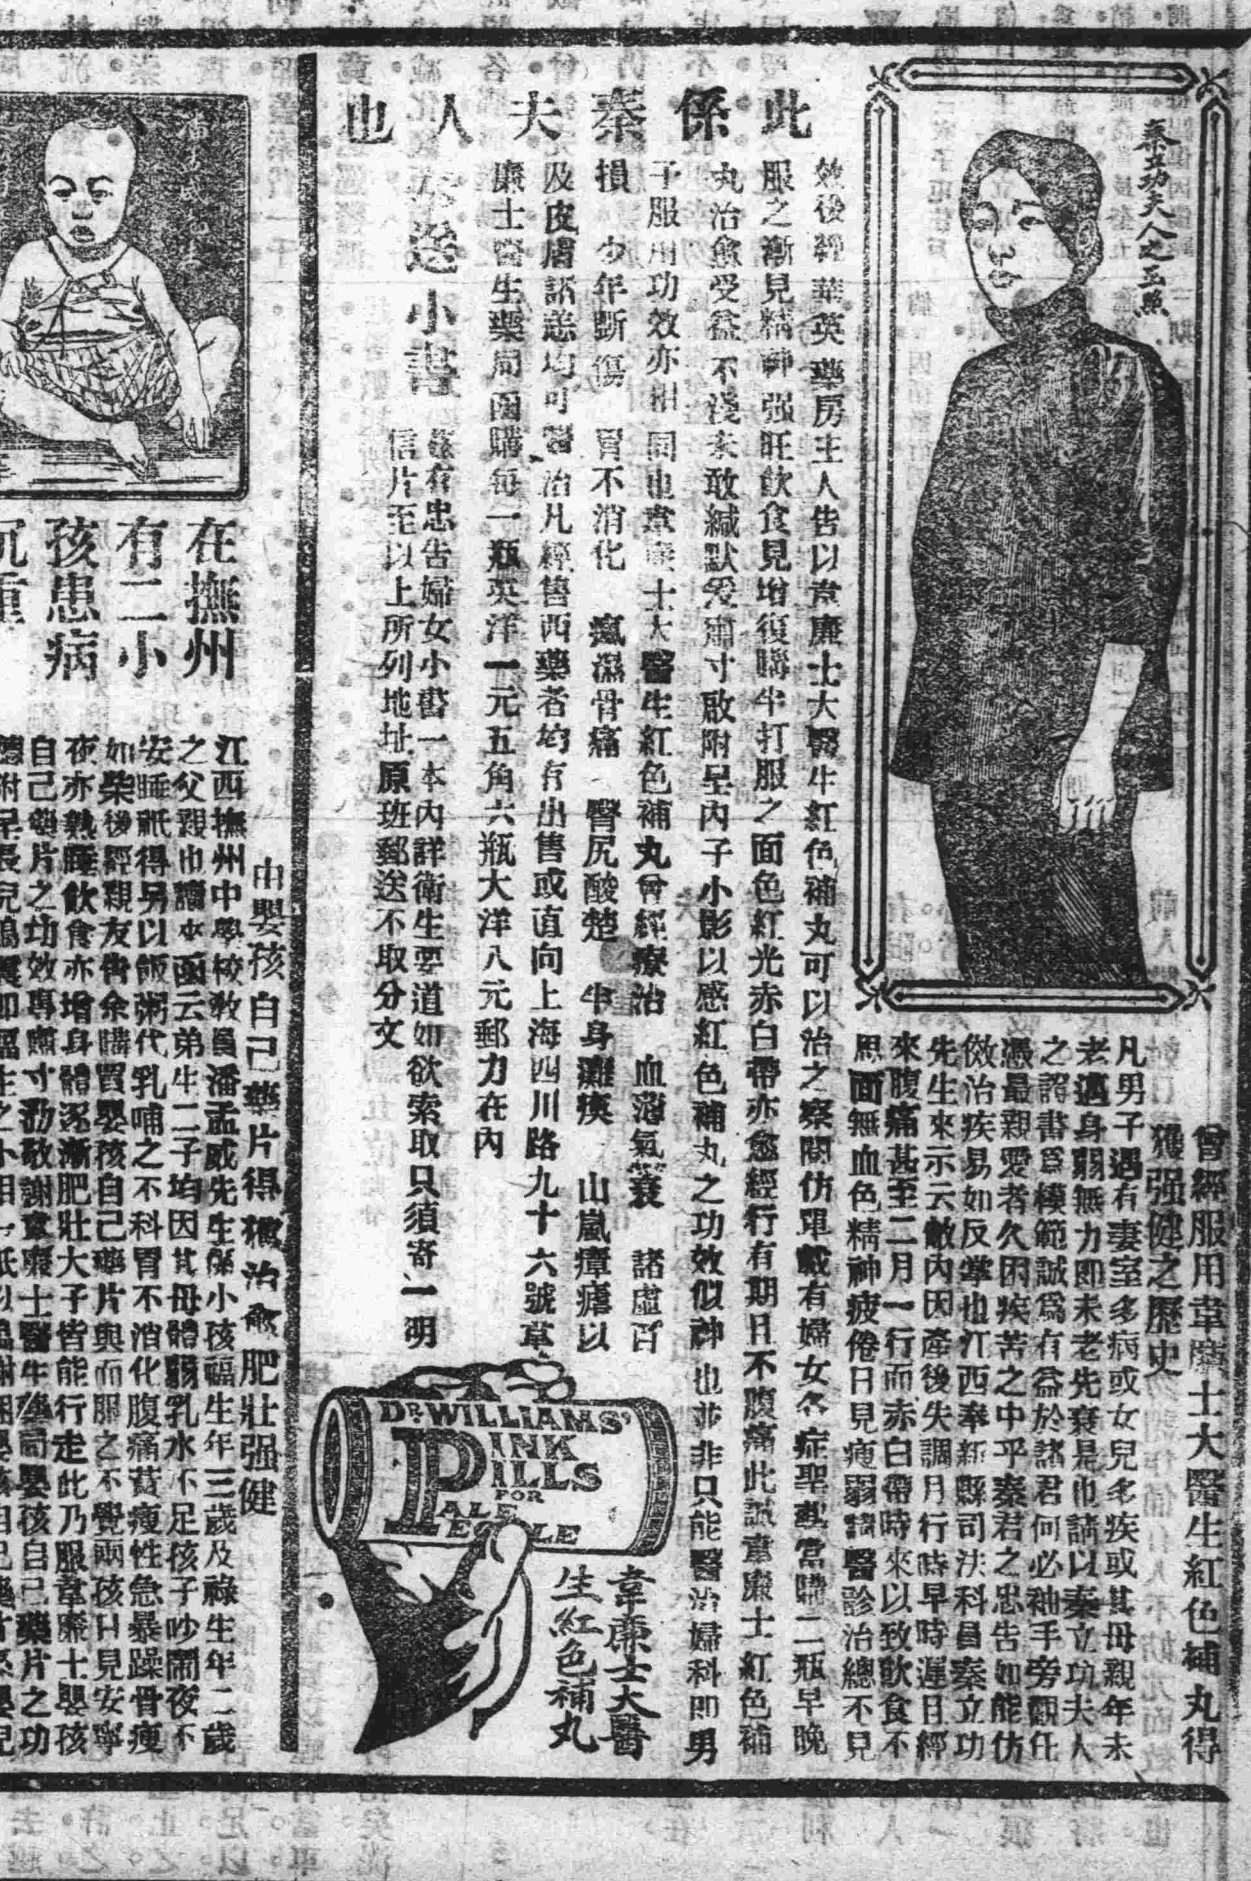 秦立功夫人之玉照
此係秦夫人也
曾經服用韋廉士大醫生紅色補丸得
獲强健之歷史
凡男子遇有妻室多病或女兒多疾或其母親年未
老遇身弱無力即未老先衰是也請以秦立功夫人
之證書爲模範誠爲有益於諸君何必袖手旁觀任
憑最親愛者久困疾苦之中乎秦君之忠告如能仿
傚治疾易如反掌也江西奉新縣司法科員秦立功
先生來示云敝內因產後失調月行時早時遲日經
來腹痛甚至二月一行而赤白帶時來以致飲食不
思面無血色精神疲倦日見瘦弱請醫診治總不見
效後經華英藥房主人告以韋廉士大醫生紅色補丸可以治之察閱仿單載有婦女各症聖藥當購二瓶早晚
服之漸見精神强旺飲食見增復購半打服之面色紅光赤白帶亦愈經行有期日不腹痛此誠韋廉士紅色補
丸治愈受益不淺未敢緘默爰肅寸啟附呈內子小影以感紅色補丸之功效似神也並非只能醫治婦科即男
子服用功效亦相同也韋廉士大醫生紅色補丸曾經療治 血薄氣衰 諸虛百
損 少年斲傷 胃不消化 瘋濕骨痛 臀尻酸楚 半身癱瘓 山嵐瘴瘧以
及皮膚諸恙均可醫治凡經售西藥者均有出售或直向上海四川路九十六號韋
廉士醫生藥局函購每一瓶英洋一元五角六瓶大洋八元郵力在內
奉送小書
茲有忠告婦女小書一本內詳衛生要道如欲索取只須寄一明
信片至以上所列地址原班郵送不取分文
DR. WILLIAMS'
PINK
PILLS
FOR
PALE
PEOPLE
韋廉士大醫
生紅色補丸
在撫州
有二小
孩患病
沉重
由嬰孩自己藥片得獲治愈肥壯强健
江西撫州中學校敎員潘孟威先生係小孩福生年三歲及祿生年二歲
之父親也讀來函云弟生二子均因其母體弱乳水不足孩子吵鬧夜不
安睡祇得另以飯粥代乳哺之不料胃不消化腹痛黃瘦性急暴躁骨瘦
如柴後經親友告余購買嬰孩自己藥片與而服之不覺兩孩日見安寧
夜亦熟睡飲食亦增身體逐漸肥壯大子皆能行走此乃服韋廉士嬰孩
自己藥片之功效專肅寸函敬謝韋廉士醫生藥局嬰孩自己藥片之功